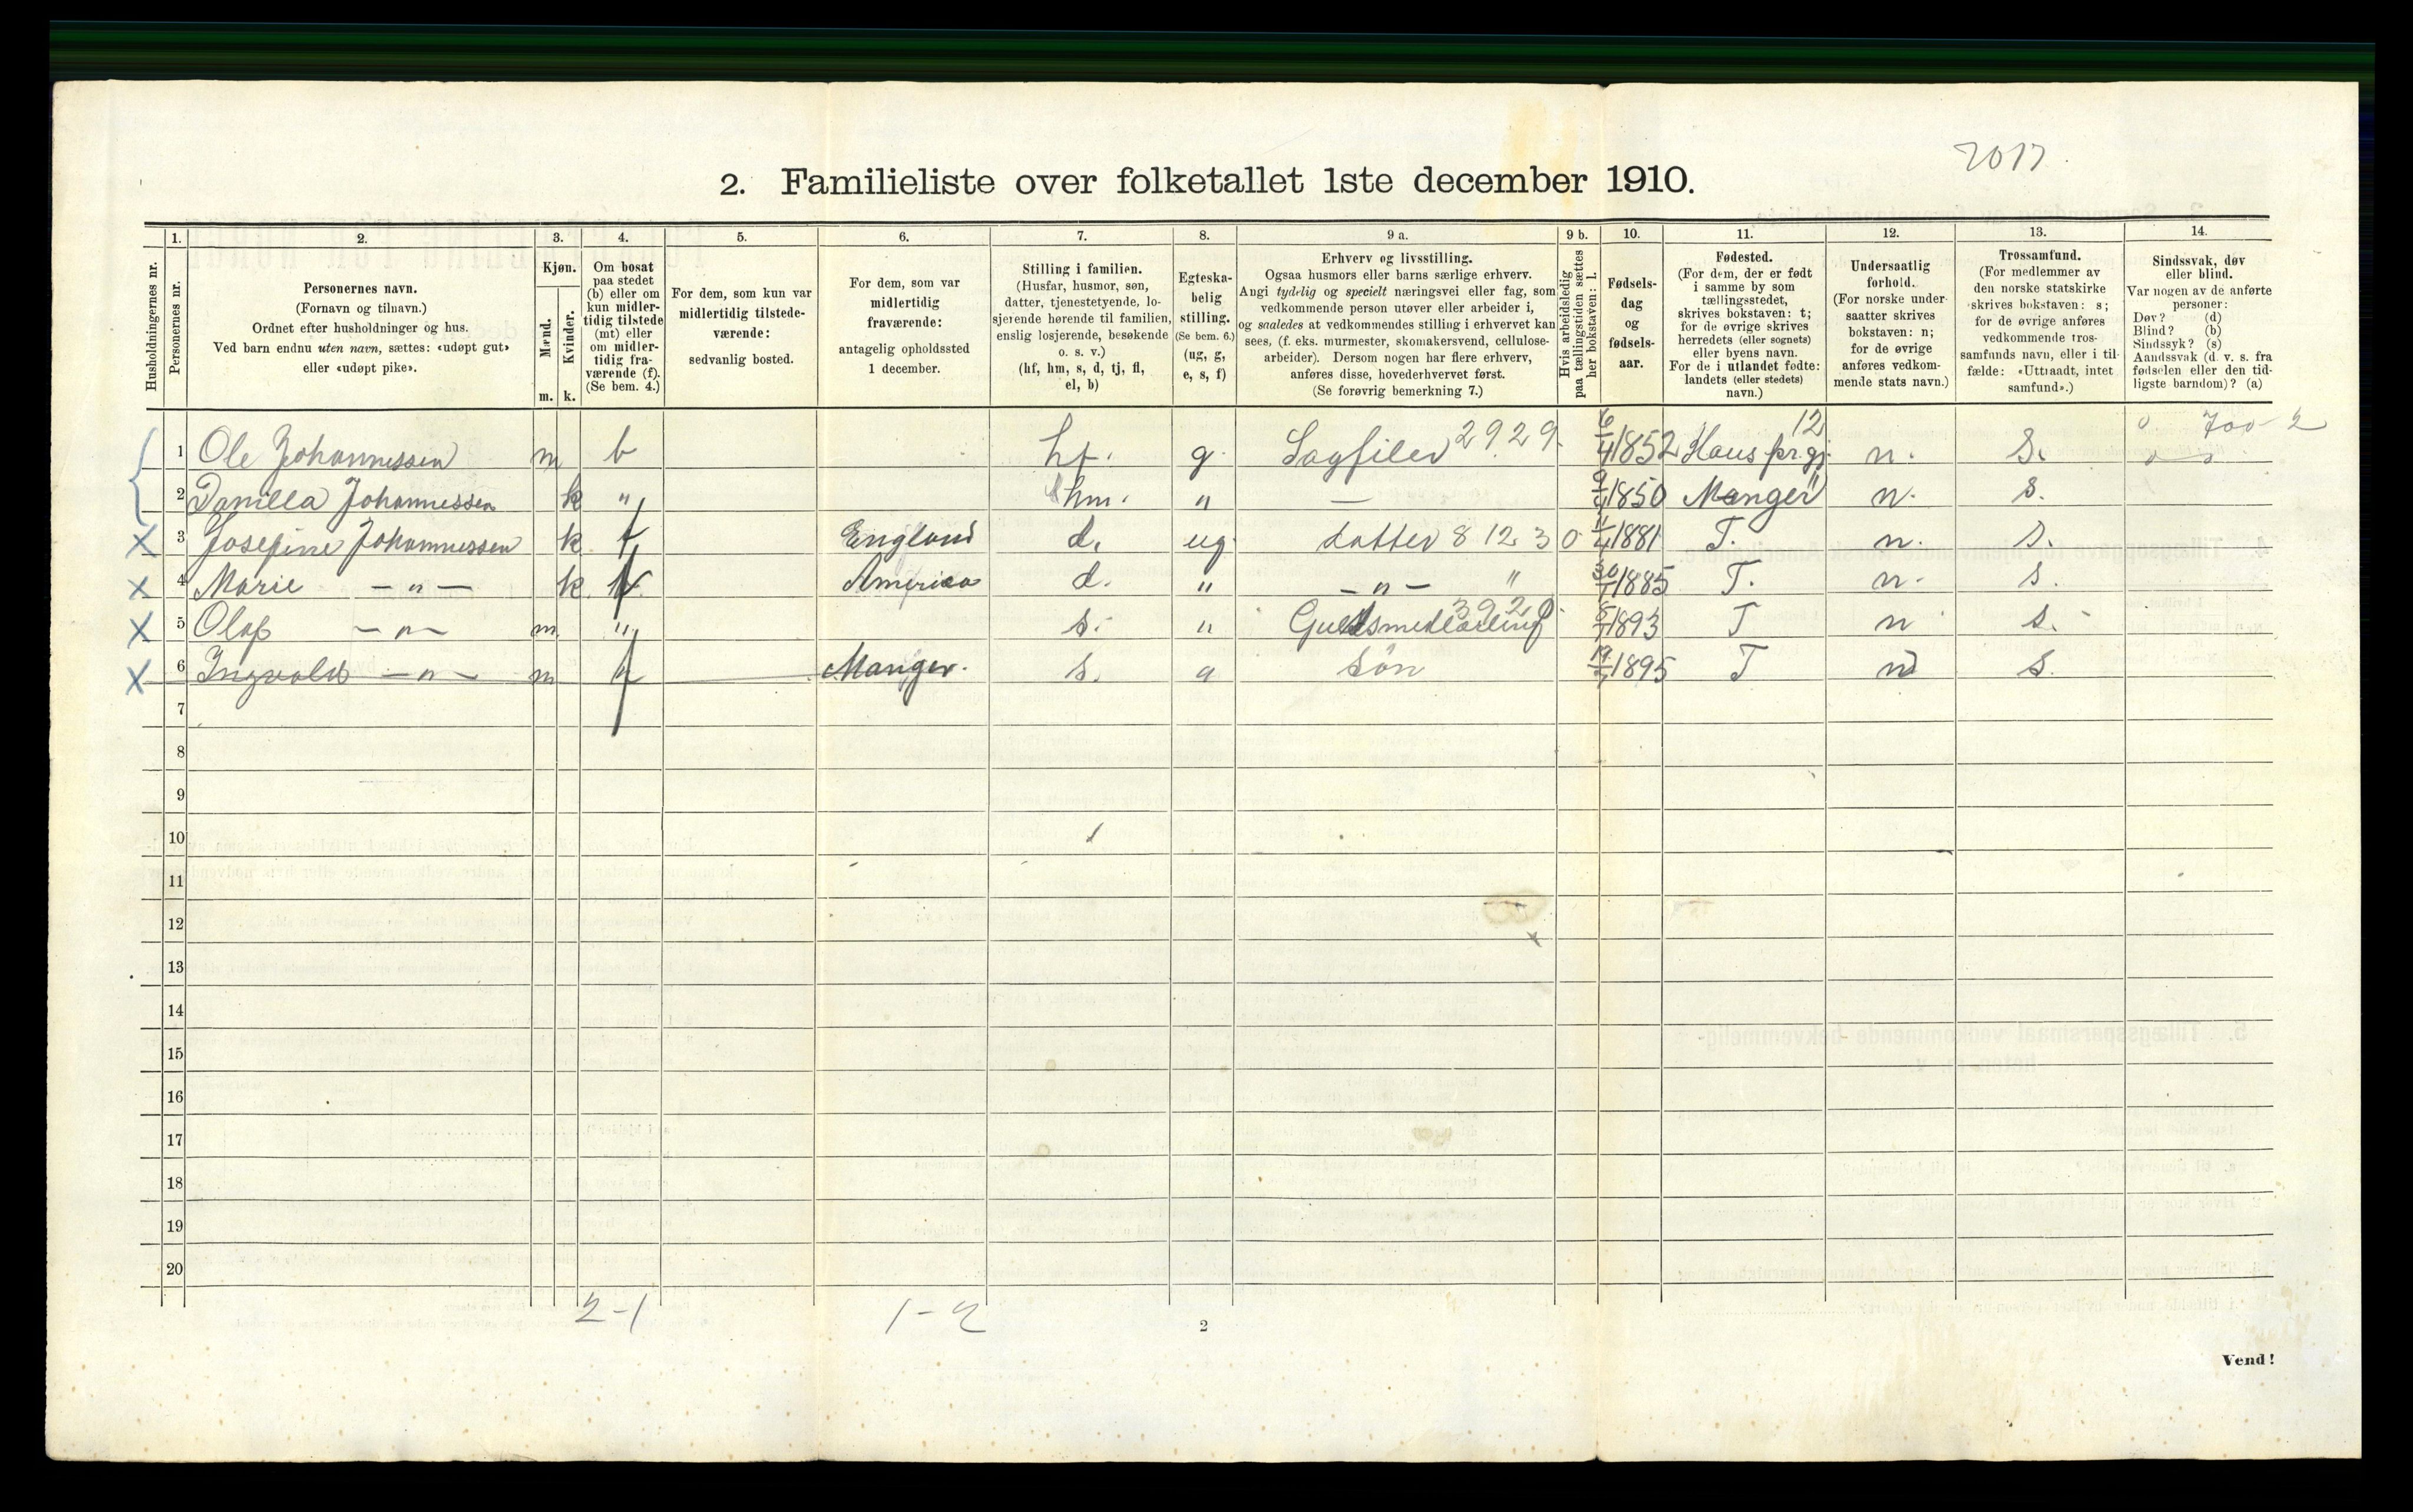 2017
2. Familieliste over folketallet 1ste december 1910.
1. 2. 3. 4. 5. 6. 7. 8. 9 a. 9 b. 10. 11. 12. 13. 14.
Husholdningernes nr.
Personernes nr.
Personernes navn.
(Fornavn og tilnavn.)
Ordnet efter husholdninger og hus.
Ved barn endnu uten navn, sættes: «udøpt gut»
eller «udøpt pike».
Kjøn.
Mænd.
Kvinder.
m. k.
Om bosat
paa stedet
(b) eller om
kun midler-
tidig tilstede
(mt) eller
om midler-
tidig fra-
værende (f).
(Se bem. 4.)
For dem, som kun var
midlertidig tilstede-
værende:
sedvanlig bosted.
For dem, som var
midlertidig
fraværende:
antagelig opholdssted
1 december.
Stilling i familien.
(Husfar, husmor, søn,
datter, tjenestetyende, lo-
sjerende hørende til familien,
enslig losjerende, besøkende
o. s. v.)
(hf, hm, s, d, tj, fl,
el, b)
Egteska-
belig
stilling.
(Se bem. 6.)
(ug, g,
e, s, f)
Erhverv og livsstilling.
Ogsaa husmors eller barns særlige erhverv.
Angi tydelig og specielt næringsvei eller fag, som
vedkommende person utøver eller arbeider i,
og saaledes at vedkommendes stilling i erhvervet kan
sees, (f. eks. murmester, skomakersvend, cellulose-
arbeider). Dersom nogen har flere erhverv,
anføres disse, hovederhvervet først.
(Se forøvrig bemerkning 7.)
Hvis arbeidsledig
paa tællingstiden sættes
her bokstaven: l.
Fødsels-
dag
og
fødsels-
aar.
Fødested.
(For dem, der er født
i samme by som
tællingsstedet,
skrives bokstaven: t;
for de øvrige skrives
herredets (eller sognets)
eller byens navn.
For de i utlandet fødte:
landets (eller stedets)
navn.)
Undersaatlig
forhold.
(For norske under-
saatter skrives
bokstaven: n;
for de øvrige
anføres vedkom-
mende stats navn.)
Trossamfund.
(For medlemmer av
den norske statskirke
skrives bokstaven: s;
for de øvrige anføres
vedkommende tros-
samfunds navn, eller i til-
fælde: «Uttraadt, intet
samfund».)
Sindssvak, døv
eller blind.
Var nogen av de anførte
personer:
Døv? (d)
Blind? (b)
Sindssyk? (s)
Aandssvak (d. v. s. fra
fødselen eller den tid-
ligste barndom)? (a)
1 Ole Johannessen m b hf. g. Sagfiler 2929. 6/4 1852 Haus pr.gj. 12 n. S. 700-2
2 Danilla Johannessen k " hm. " — 1850 Manger " n. s.
X 3 Josefine Johannessen k f England d. ug. datter 8 12 3 0 11/4 1881 T. n. s.
X 4 Marie —"— k f America d. " —"— " 1885 T. n. s.
X 5 Olaf —"— m " s. " 3920 1893 T n s.
X 6 Ingvald —"— m f Manger. s. søn 1895 T n s.
7
8
9
10
11
12
13
14
15
16
17
18
19
20
2-1 1-2
2
Vend!